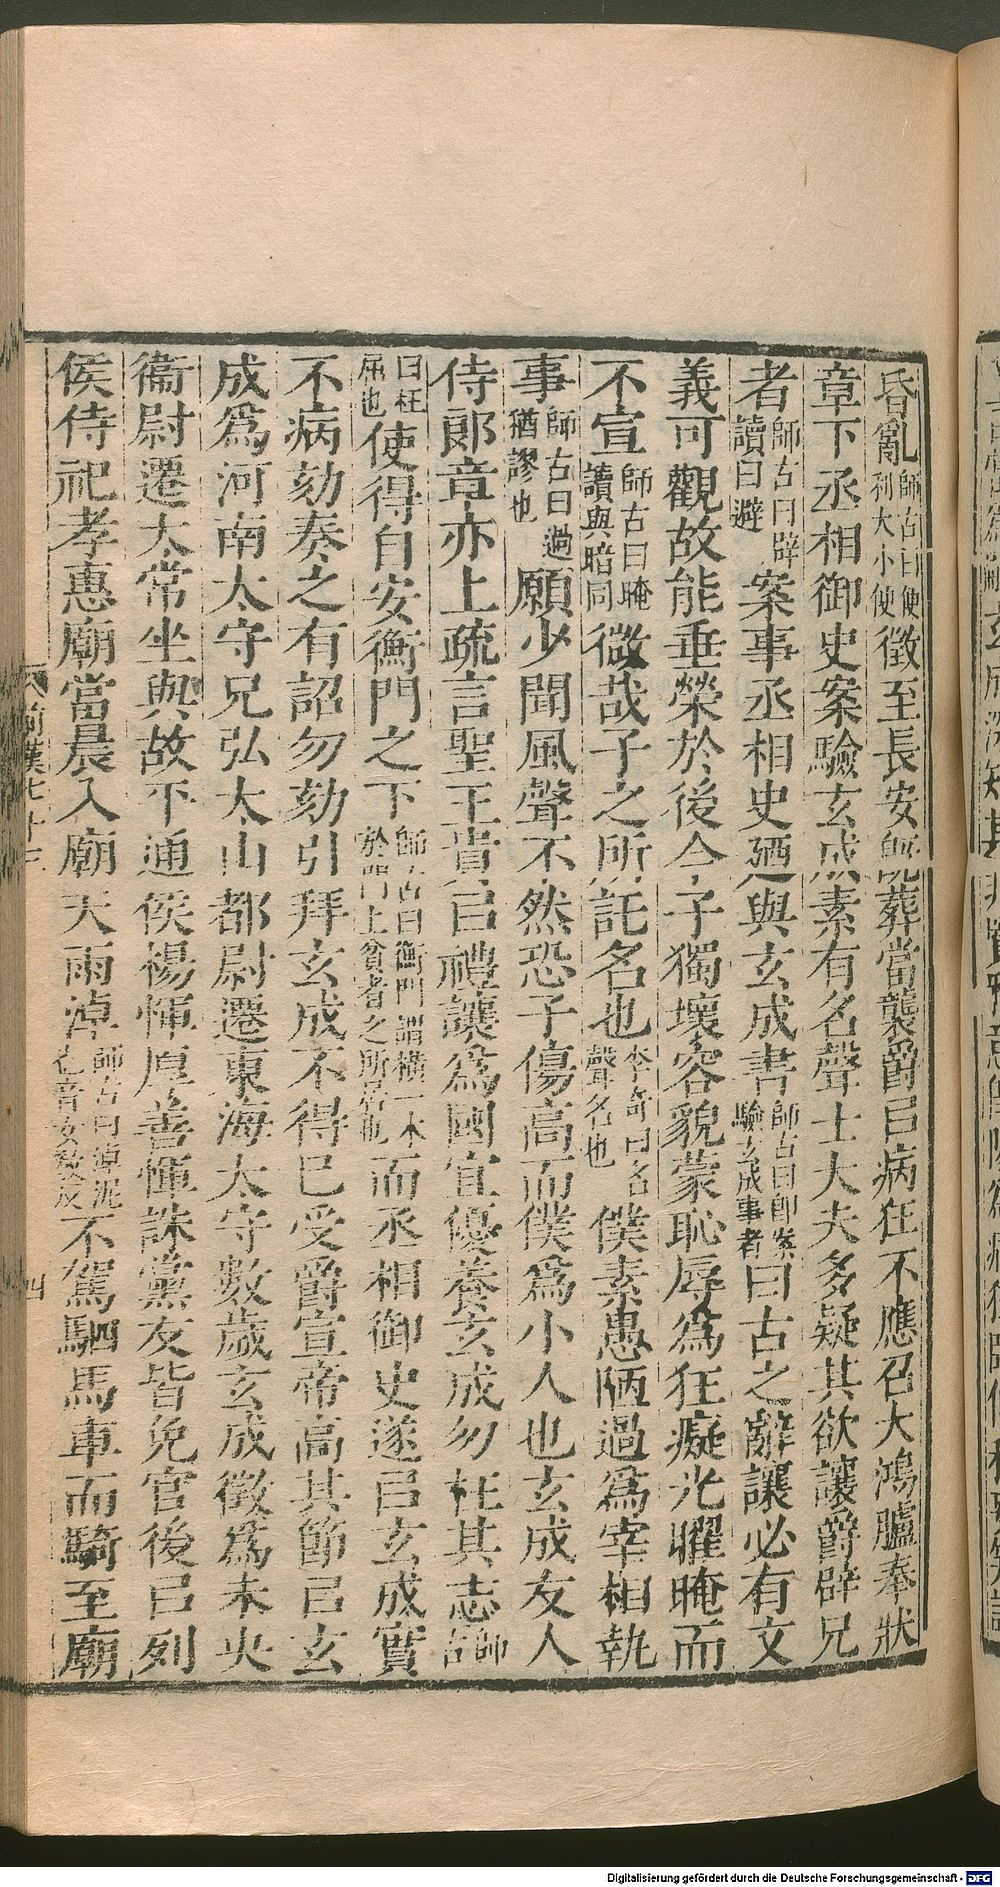 昏亂師古曰便利大小便徵至長安旣葬當襲爵㠯病狂不應召大鴻臚奉狀
章下丞相御史案驗玄成素有名聲士大夫多疑其欲讓爵辟兄
者師古曰辟讀曰避案事丞相史廼與玄成書師古曰卽案驗玄成事者曰古之辭讓必有文
義可觀故能垂榮於後今子獨壞容貌蒙恥辱爲狂癡光曜晻而
不宣師古曰晻讀與暗同微哉子之所託名也李奇曰名聲名也僕素愚陋過爲宰相執
事師古曰過猶謬也願少聞風聲不然恐子傷高而僕爲小人也玄成友人
侍郎章亦上疏言聖王貴㠯禮讓爲國宜優養玄成勿枉其志師古
曰枉屈也使得自安衡門之下師古曰衡門謂橫一木於門上貧者之所居也而丞相御史遂㠯玄成實
不病劾奏之有詔勿劾引拜玄成不得已受爵宣帝高其節㠯玄
成爲河南太守兄弘太山都尉遷東海太守數歲玄成徵爲未央
衞尉遷太常坐與故平通侯楊惲厚善惲誅黨友皆免官後㠯列
侯侍祀孝惠廟當晨入廟天雨淖師古曰淖泥也音女教反不駕駟馬車而騎至廟
前漢七十三
四
Digitalisierung gefördert durch die Deutsche Forschungsgemeinschaft - DFG